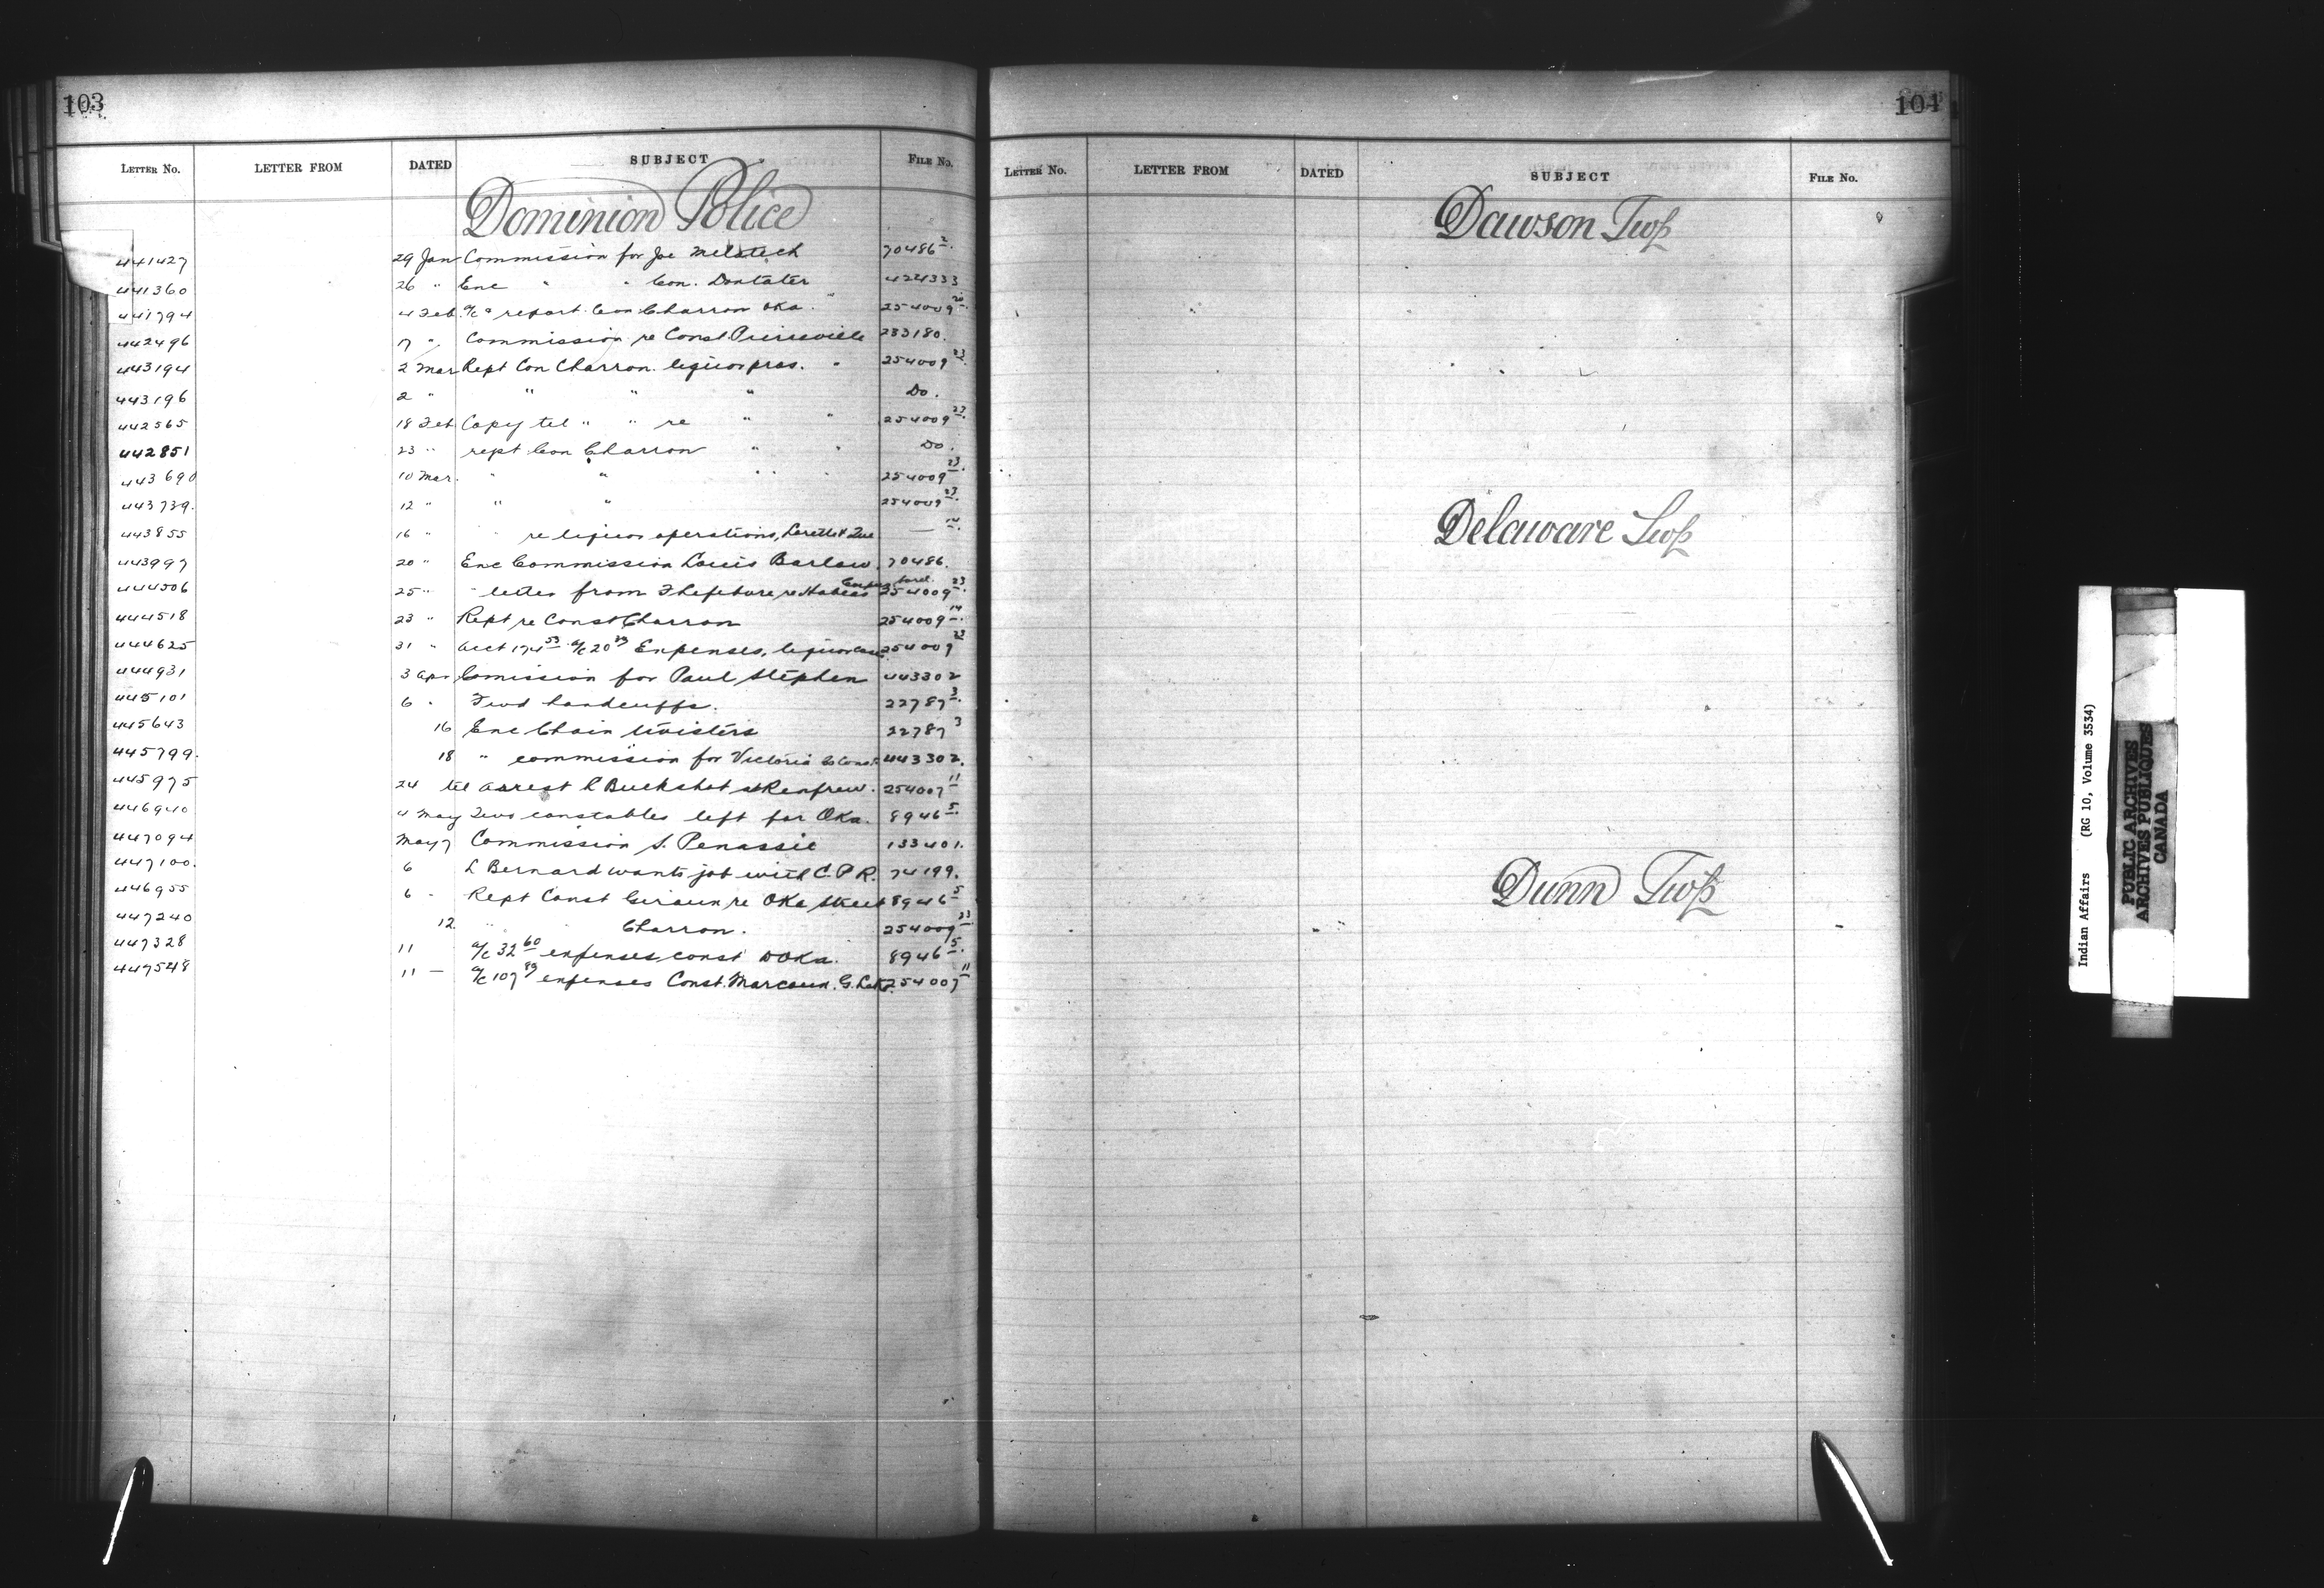 103
LETTER No. LETTER FROM DATED SUBJECT FILE No.
Dominion Police
441427 29 Jan Commission for Joe 70486 2
441360 26 " Enc " " Con. 424333
441794 4 Feb. a/c & report Con Charron Oka " 254009 20
442496 17 " Commission re Const 233180.
443194 2 Mar Rept Con Charron. liquor pros. " 254009 23
443196 2 " " " " Do.
442565 18 Feb Copy tel " " re " " 254009 23
442851 23 " rept Con Charron " " Do.
443690 10 Mar. " " " " 254009 23
443739. 12 " " " 254009 23
443855 16 " " re liquor operations, Lorette Que — 14
443997 20 " Enc Commission Louis Barlow. 70486.
444506 25 " " letter from Lefebvre re Habeas Corpus 254009 23
444518 23 " Rept re Const Charron 254009 14
444625 31 " acct 174 53 a/c 20 Expenses, liquor case 254009 23
444931 3 Apr Comission for Paul Stephen 443302
445101 6 " Fwd handcuffs. 22787 3
445643 16 Enc Chain twisters 22787 3
445799. 18 " commission for Victoria Const. 443302.
445975 24 tel arrest Buckshot at Renfrew. 254007 11
446940 4 May Two constables left for Oka. 8946 5
447094 May 7 Commission S. Penassie 133401.
447100. 6 L Bernard wants job with C.P.R. 74199.
446955 6 " Rept Const re Oka 8946 5
447240 12 " Charron. 254009 23
447328 11 a/c 32 60 expenses const Oka. 8946 5
447548 11 — a/c 107 89 expenses Const. Marcoun. G. Lake. 254007 11
104
LETTER No. LETTER FROM DATED SUBJECT FILE No.
Dawson Twp
Delaware Twp
Dunn Twp
Indian Affairs (RG 10, Volume 3534)
PUBLIC ARCHIVES
ARCHIVES PUBLIQUES
CANADA